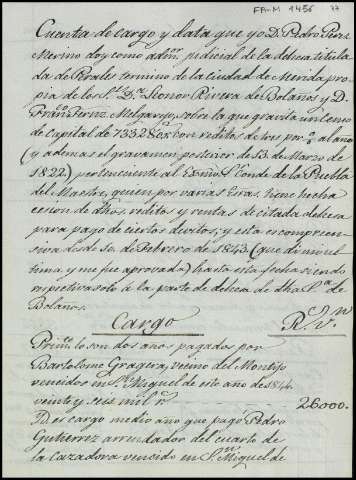 FA-M 1456
Cuenta de cargo y data que yo D. Pedro Perez
Merino doy como admor. judicial de la dehesa titula
da de Perales termino de la ciudad de Merida pro
pia de los Sres. Dª. Leonor Rivera de Bolaños y D.
Franco. Ferniz. Melgarejo, sobre la que gravita un censo
de capital de 133280 rs. con reditos de tres por % al año
(y ademas el gravamen posterior de 13 de Marzo de
1822) perteneciente al Exmo. Sr. Conde de la Puebla
del Maestre, quien por varias Esras. tiene hecha
cesion de dhos. reditos y rentas de citada dehesa
para pago de ciertos devitos; y esta es compreen
siva desde 1º. de Febrero de 1843 (que di mi ul
tima y me fue aprovada) hasta esta fecha siendo
respectiva solo a la parte de dehesa de dha Sra. de
Bolaños.
Cargo Rs. Vn.
Primte. lo son dos años pagados por
Bartolome Gragera, vecino del Montijo
vencidos en Sn. Miguel de este año de 1844
veinte y seis mil rs. 26.000.
Id. es cargo medio año que pagó Pedro
Gutierrez arrendador del cuarto de
la cazadora vencido en Sn. Miguel de